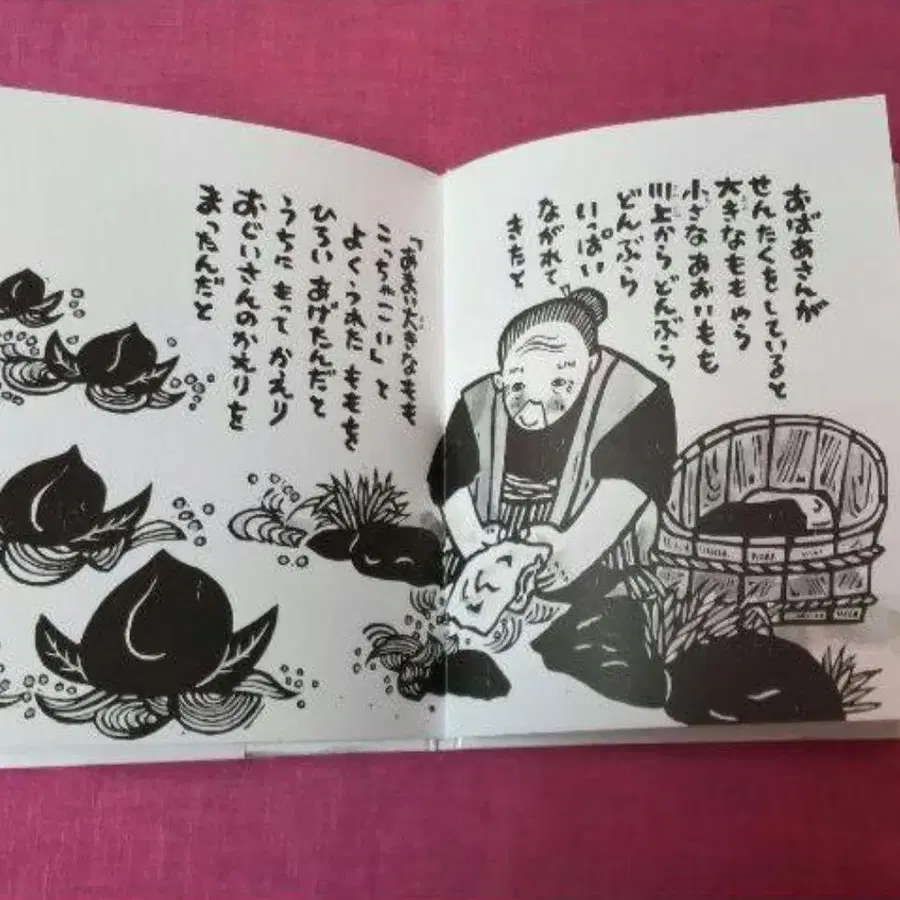 おばあさんが
せんたくをしていると
大きなももやら
小さなあおいもも
川上からどんぶら
どんぶら
いっぱい
ながれて
きたと
「あまい大きなもも
こっちゃこい」と
よくうれたももを
ひろいあげたんだと
うちにもってかえり
おじいさんのかえりを
まったんだと